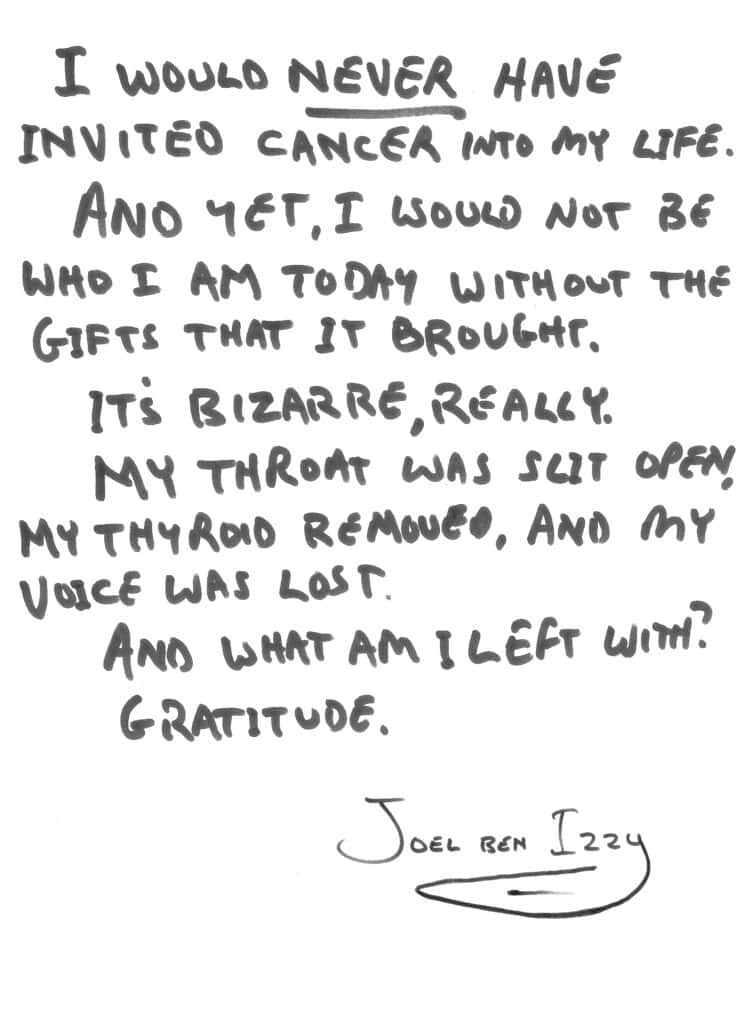 I WOULD NEVER HAVE
INVITED CANCER INTO MY LIFE.
AND YET, I WOULD NOT BE
WHO I AM TODAY WITHOUT THE
GIFTS THAT IT BROUGHT.
IT'S BIZARRE, REALLY.
MY THROAT WAS SLIT OPEN,
MY THYROID REMOVED, AND MY
VOICE WAS LOST.
AND WHAT AM I LEFT WITH?
GRATITUDE.
JOEL BEN IZZY